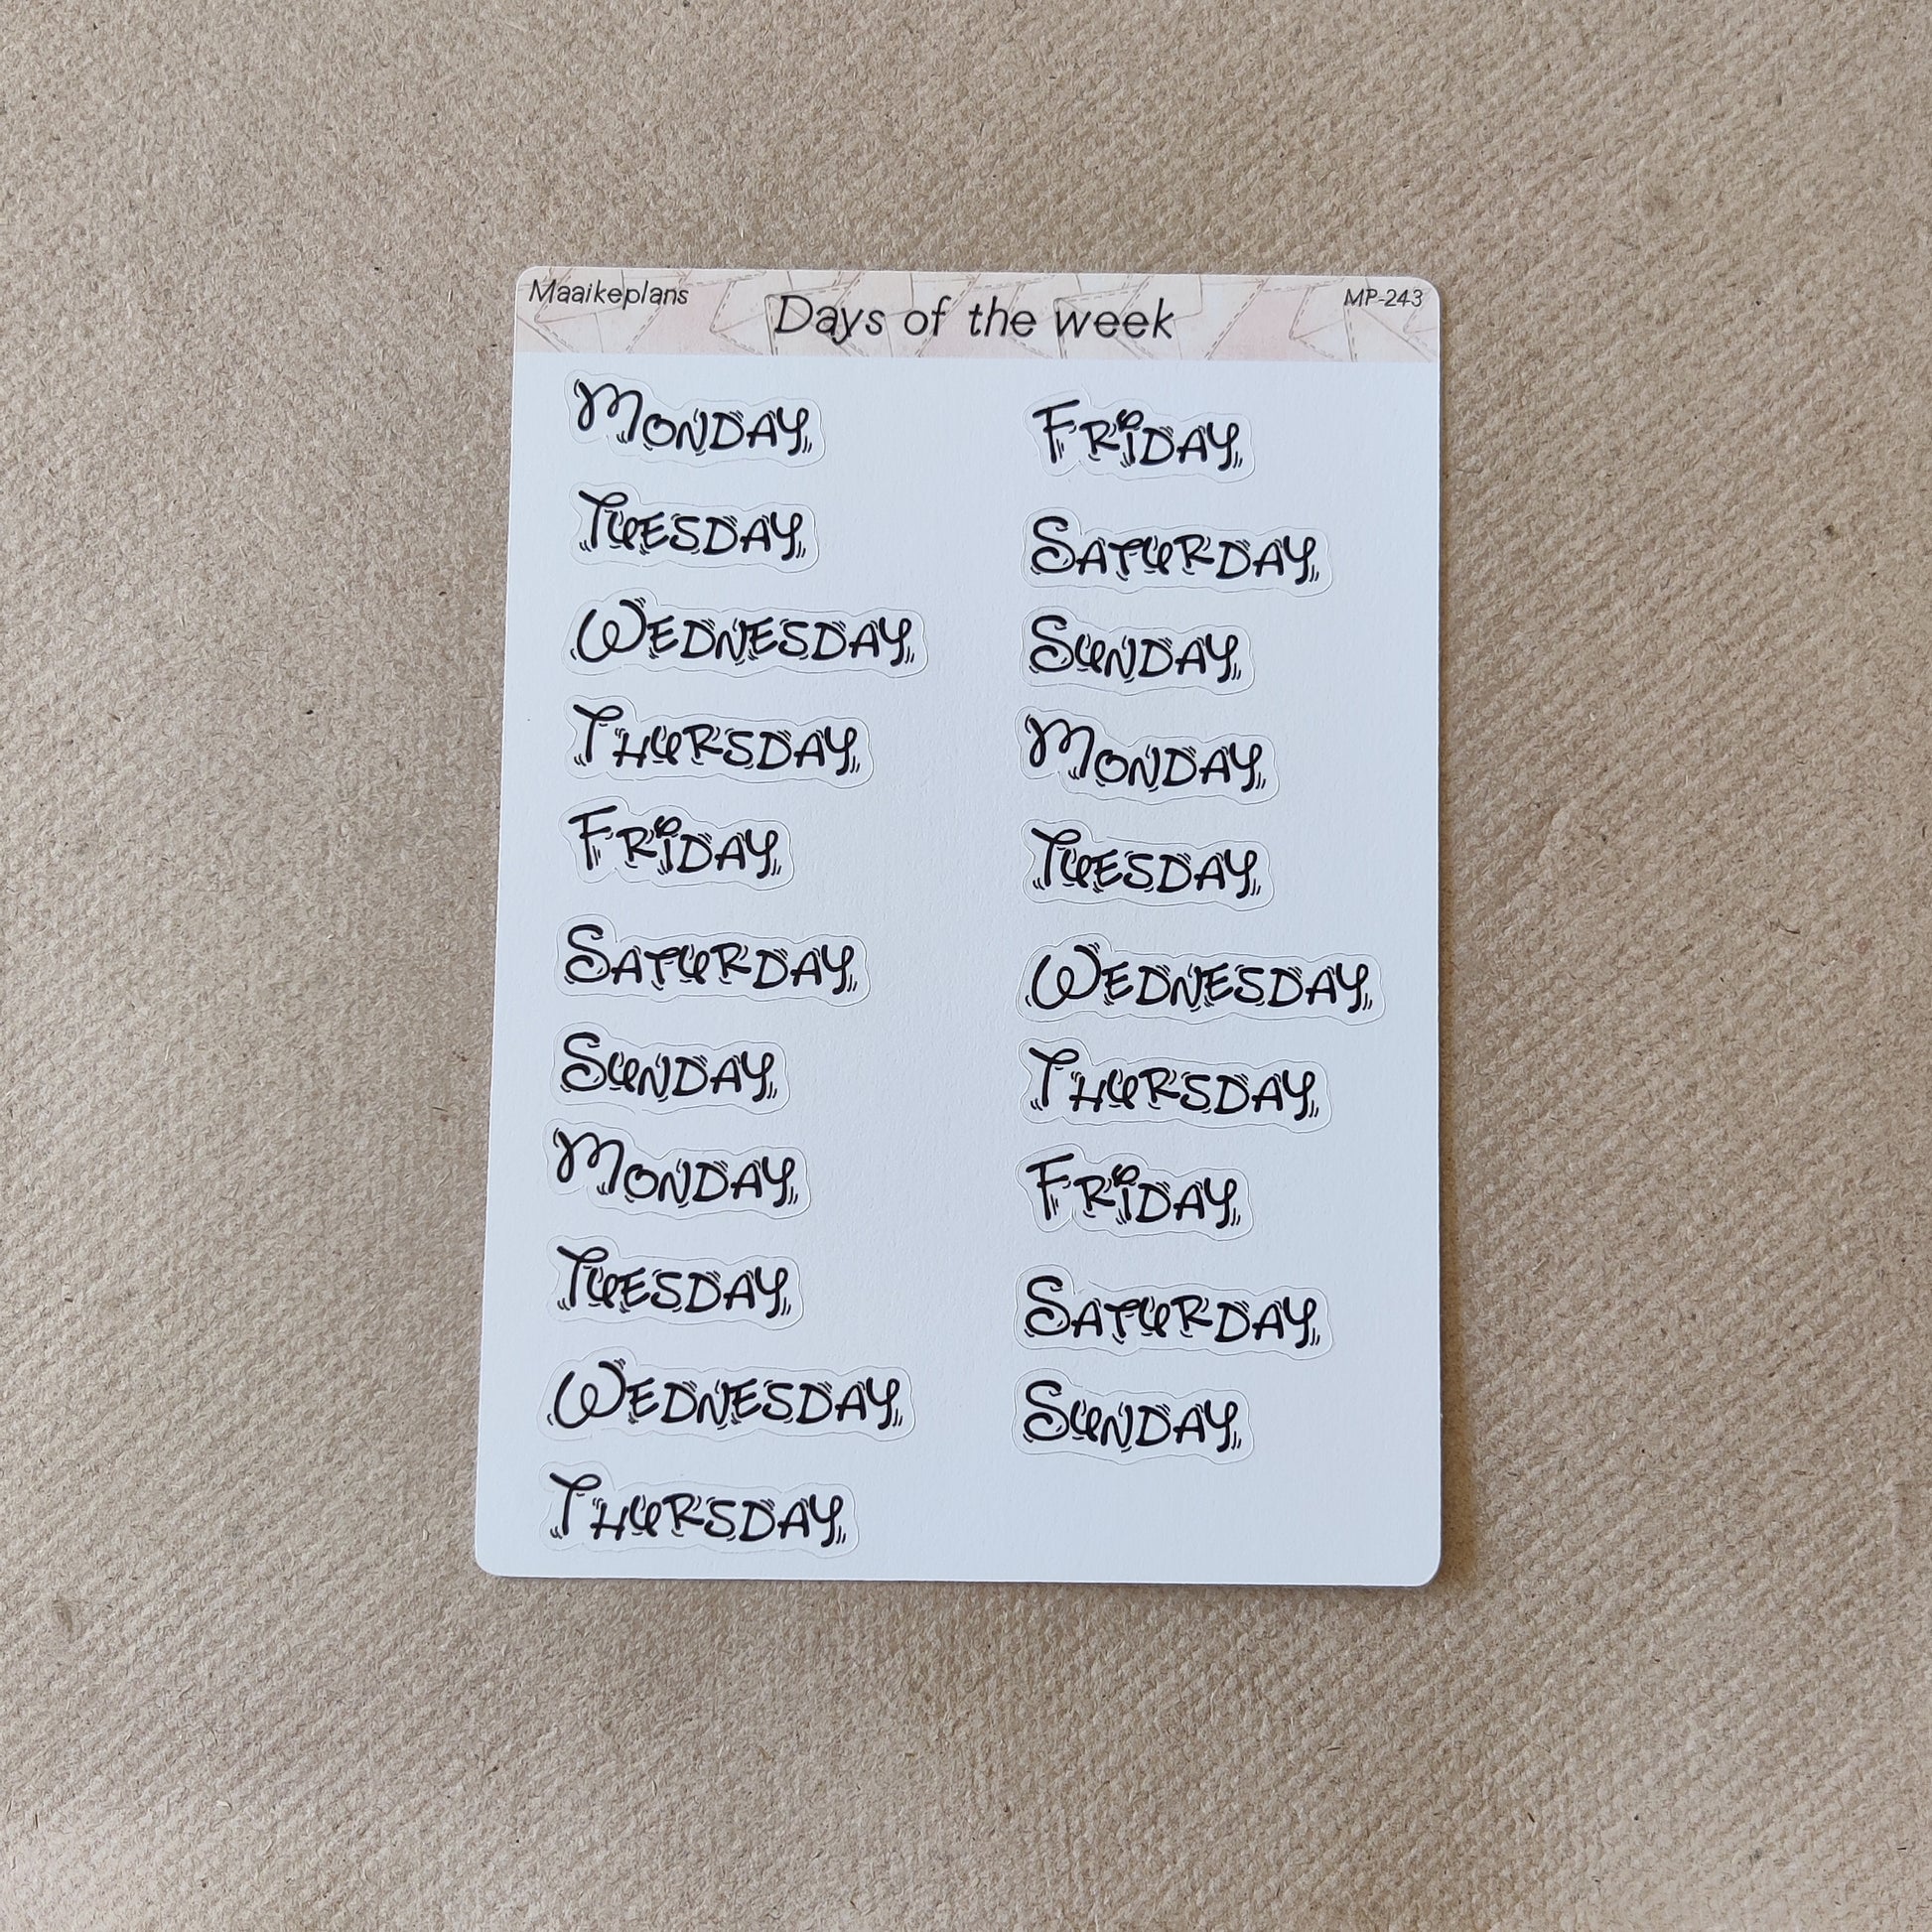 Maaikeplans
Days of the week
MP-243
MONDAY
TUESDAY
WEDNESDAY
THURSDAY
FRiDAY
SATURDAY
SUNDAY
MONDAY
TUESDAY
WEDNESDAY
THURSDAY
FRiDAY
SATURDAY
SUNDAY
MONDAY
TUESDAY
WEDNESDAY
THURSDAY
FRiDAY
SATURDAY
SUNDAY